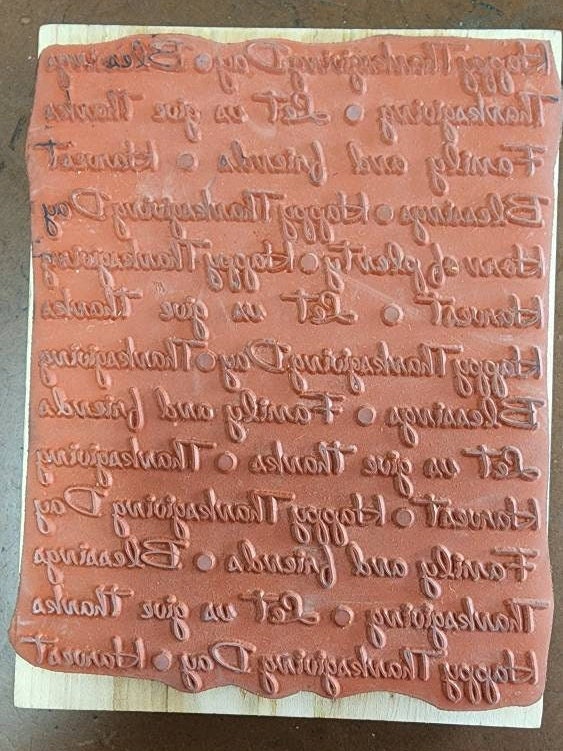 Happy Thanksgiving Day • Blessings
Thanksgiving • Let us give thanks
Family and friends • Harvest
Blessings • Happy Thanksgiving Day
Horn of plenty • Happy Thanksgiving
Harvest • Let us give thanks
Happy Thanksgiving Day • Thanksgiving
Blessings • Family and friends
Let us give thanks • Thanksgiving
Harvest • Happy Thanksgiving Day
Family and friends • Blessings
Thanksgiving • Let us give thanks
Happy Thanksgiving Day • Harvest